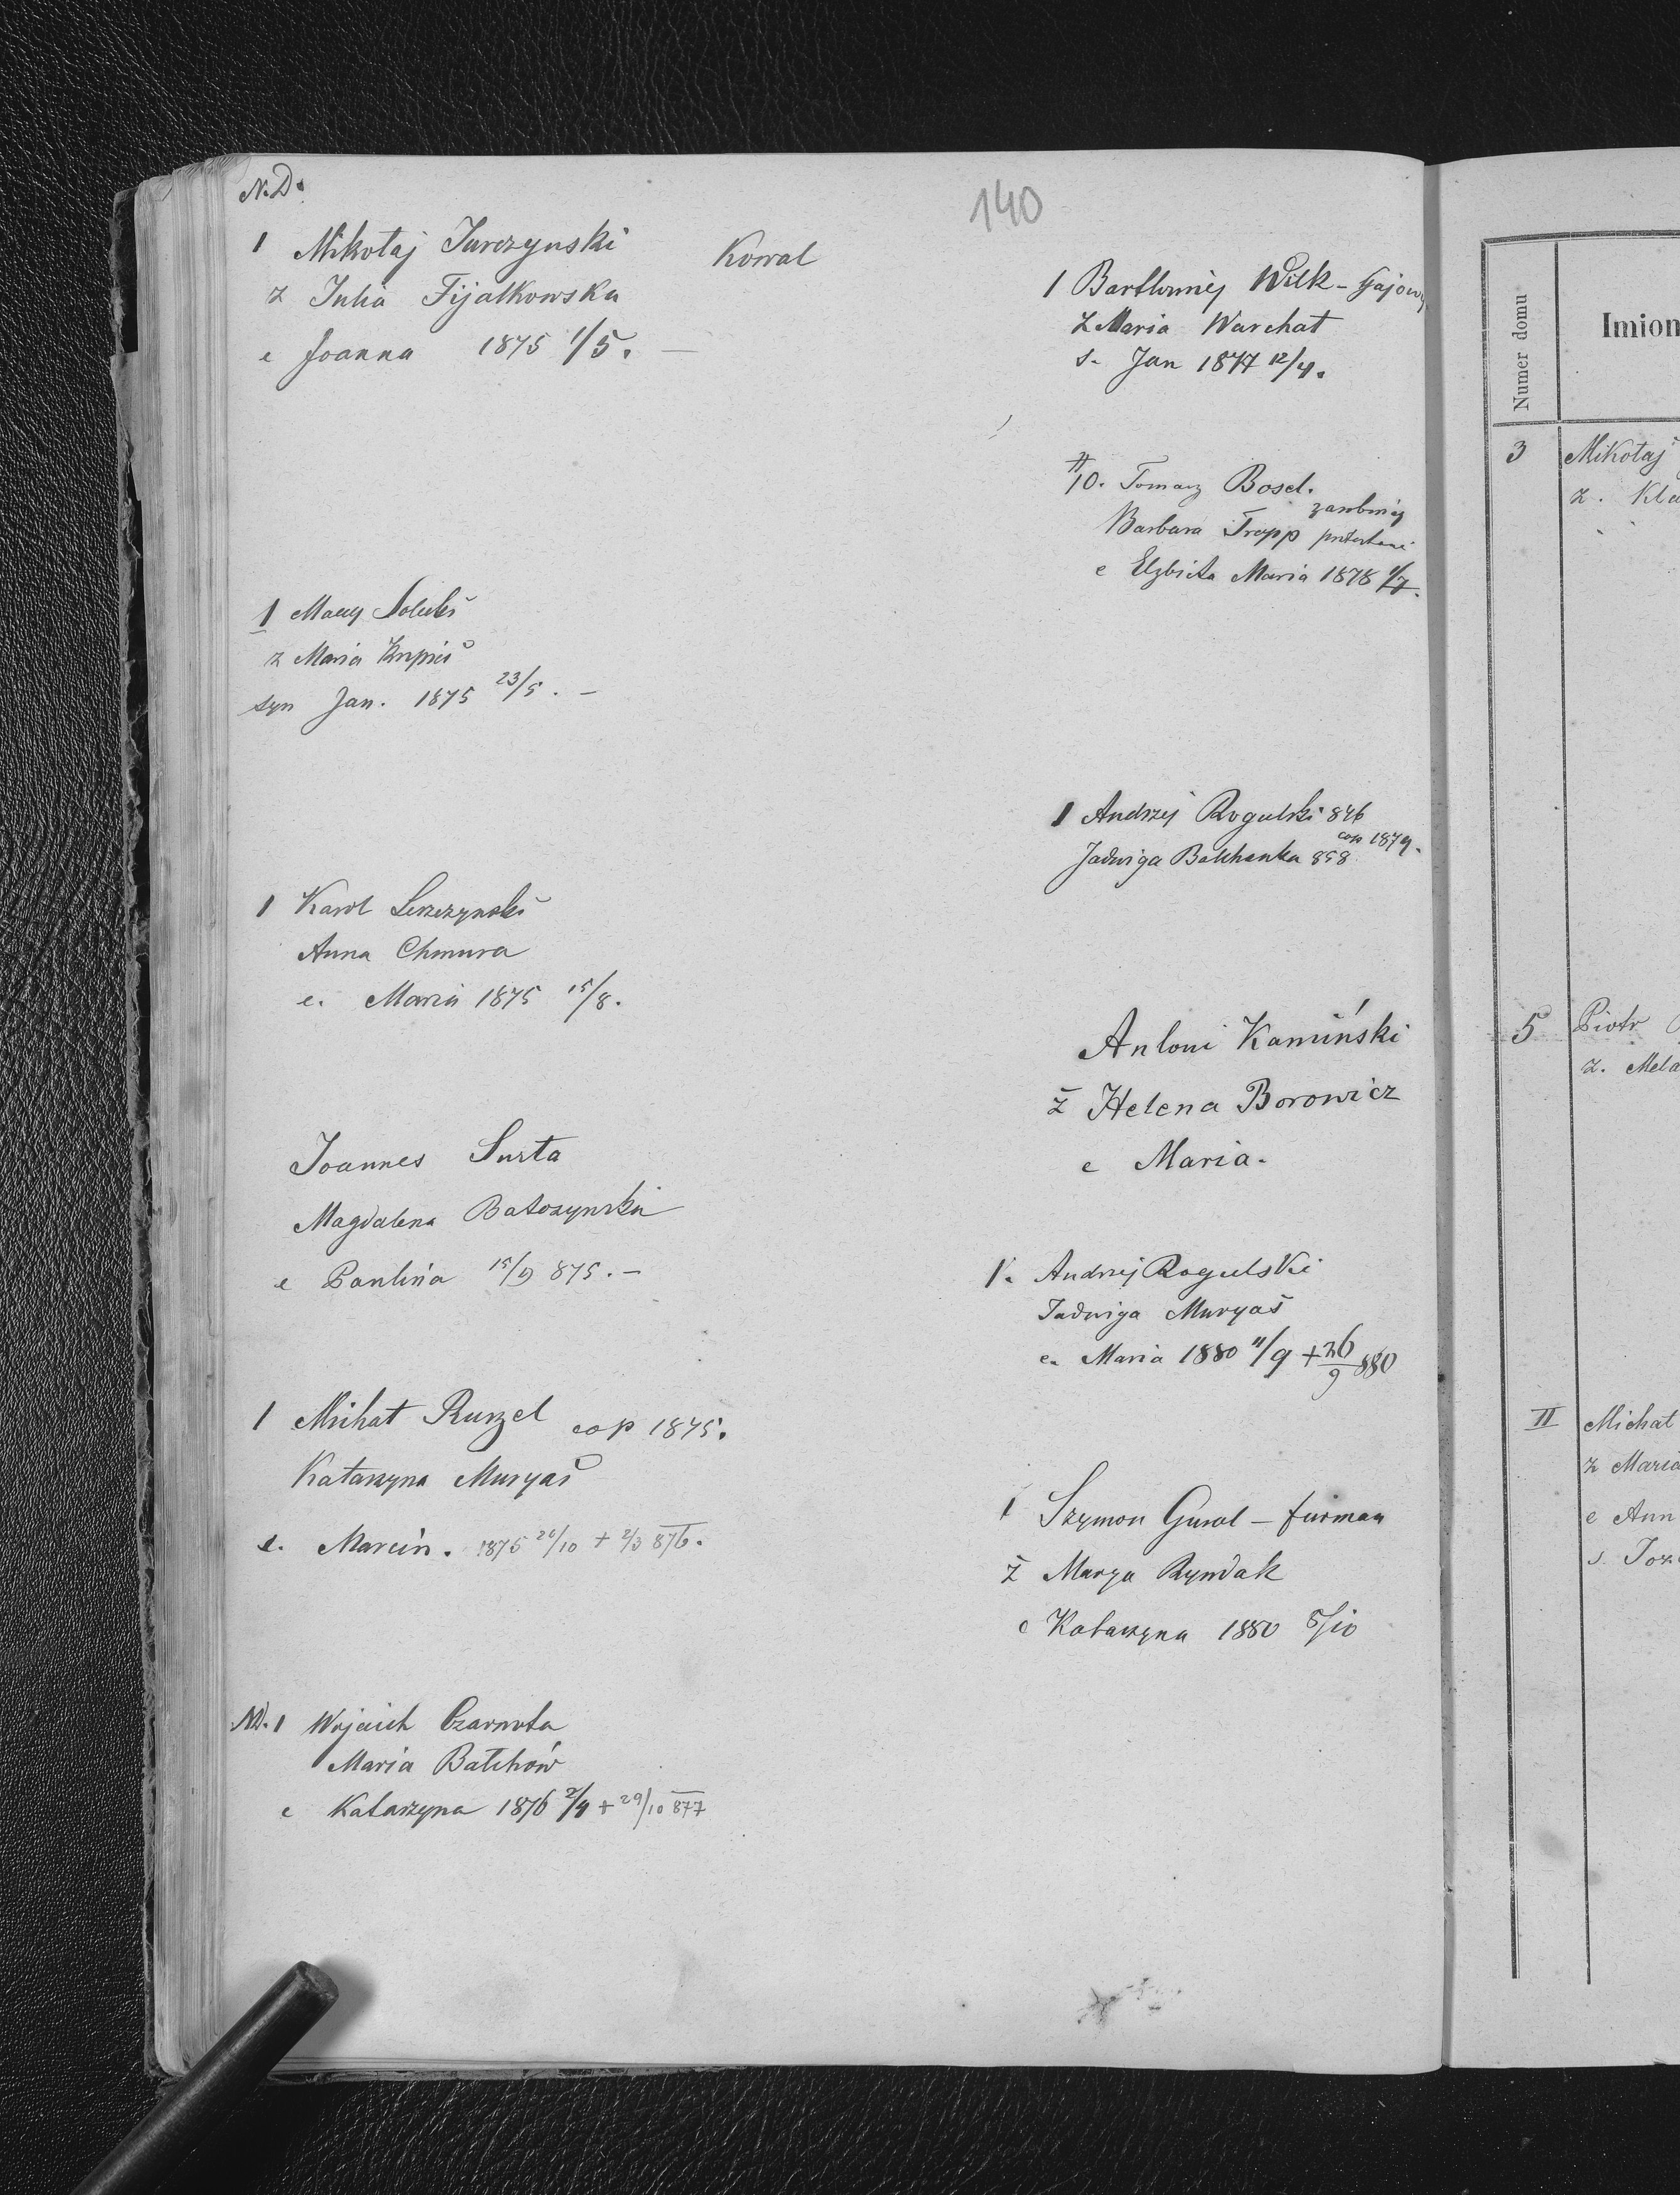 N.D.
140
1 Mikołaj Jurczynski Kowal
z Julia Fijałkowska
c Joanna 1875 1/5. —
1 Maciej
z Maria Krupiś
syn Jan. 1875 23/5. —
1 Karol Leszczynski
Anna Chmura
c. Maria 1875 15/8.
Joannes Surta
Magdalena Batoszynska
c Paulina 15/9 875. —
1 Michał Ruszel cop 1875.
Katarzyna Muryaś
s. Marcin. 1875 26/10 + 2/3 876.
ND. 1 Wojciech Czarnota
Maria Bałchów
c Katarzyna 1876 2/4 + 29/10 877
1 Bartłomiej Wilk - Gajowy
z Maria Warchał
s. Jan 1877 12/4.
10. Tomasz Bosel.
zarobnicy
Barbara Trapp
c Elzbieta Maria 1878 1/7.
1 Andrzej Rogulski 846
cop 1879.
Jadwiga Bałchanka 858
Antoni Kamiński
ż Helena Borowicz
c Maria.
1. Andrzej Rogulski
Jadwiga Muryaś
c. Maria 1880 11/9 + 26/9 880
1 Szymon Gural — furman
ż Marya Rymdak
c Katarzyna 1880 5/10
Numer domu
Imion
3 Mikołaj
z. Kla
5 Piotr
z. Mela
II Michał
z Maria
c Ann
s. Joz